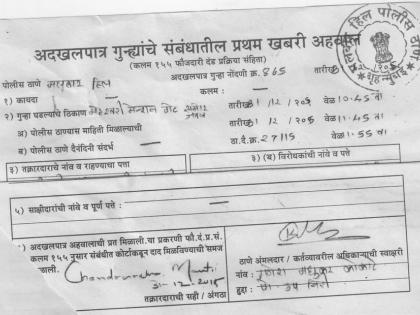 अदखलपात्र गुन्ह्यांचे संबंधातील प्रथम खबरी अहवाल
(कलम १५५ फौजदारी दंड प्रक्रिया संहिता)
पोलीस ठाणे मलबार हिल अदखलपात्र गुन्हा नोंदणी क्र. 865 तारीख
१) कायदा — कलम : —
२) गुन्हा घडल्याचे ठिकाण गेट तारीख 31/12/205 वेळ 10.45 वा
अ) पोलीस ठाण्यास माहिती मिळाल्याची तारीख 31/12/205 वेळ 11.45 वा
ब) पोलीस ठाणे दैनंदिनी संदर्भ — ठा.दै.क्र. 27/15 वेळ 11.55 वा
३) तक्रारदाराचे नांव व राहण्याचा पत्ता
३) (ब) विरोधकांची नांवे व पत्ते
५) साक्षीदारांची नांवे व पूर्ण पत्ते :
) अदखलपात्र अहवालाची प्रत मिळाली.या प्रकरणी फौ.दं.प्र.सं.
कलम १५५ नुसार संबंधीत कोर्टाकडून दाद मिळविण्याची समज
ळाली.
31-12-2015
तक्रारदाराची सही / अंगठा
ठाणे अंमलदार / कर्तव्यावरील अधिकाऱ्याची स्वाक्षरी
नांव :
हुद्दा :